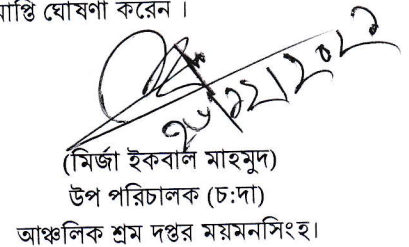 াপ্তি ঘোষণা করেন ।
(মির্জা ইকবাল মাহমুদ)
উপ পরিচালক (চ:দা)
আঞ্চলিক শ্রম দপ্তর ময়মনসিংহ।